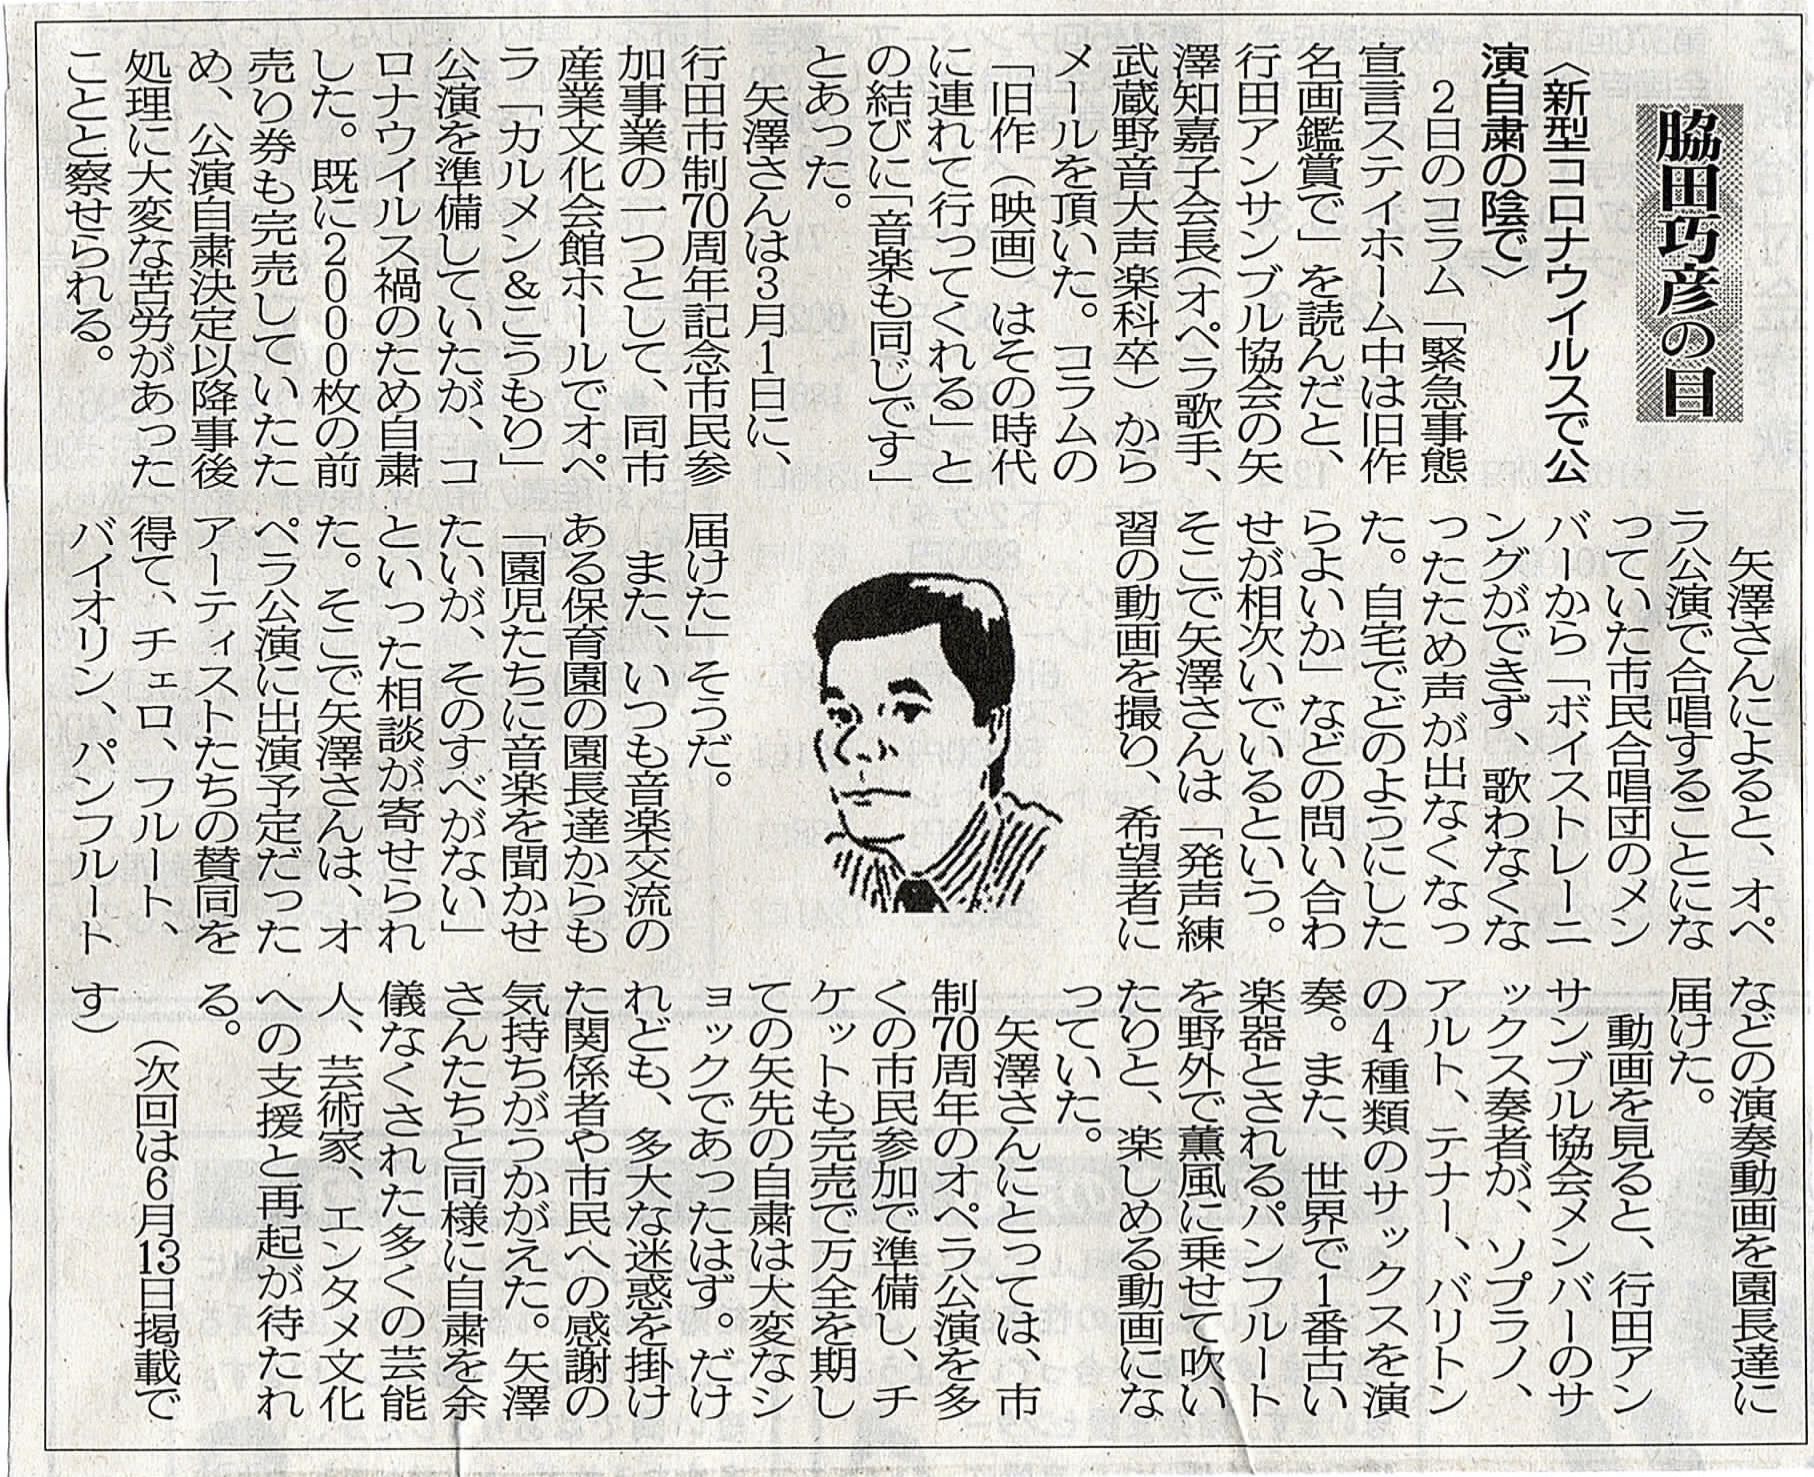 脇田巧彦の目
〈新型コロナウイルスで公
演自粛の陰で〉
２日のコラム「緊急事態
宣言ステイホーム中は旧作
名画鑑賞で」を読んだと、
行田アンサンブル協会の矢
澤知嘉子会長（オペラ歌手、
武蔵野音大声楽科卒）から
メールを頂いた。コラムの
「旧作（映画）はその時代
に連れて行ってくれる」と
の結びに「音楽も同じです」
とあった。
矢澤さんは３月１日に、
行田市制70周年記念市民参
加事業の一つとして、同市
産業文化会館ホールでオペ
ラ「カルメン＆こうもり」
公演を準備していたが、コ
ロナウイルス禍のため自粛
した。既に２０００枚の前
売り券も完売していたた
め、公演自粛決定以降事後
処理に大変な苦労があった
ことと察せられる。
矢澤さんによると、オペ
ラ公演で合唱することにな
っていた市民合唱団のメン
バーから「ボイストレーニ
ングができず、歌わなくな
ったため声が出なくなっ
た。自宅でどのようにした
らよいか」などの問い合わ
せが相次いでいるという。
そこで矢澤さんは「発声練
習の動画を撮り、希望者に
届けた」そうだ。
また、いつも音楽交流の
ある保育園の園長達からも
「園児たちに音楽を聞かせ
たいが、そのすべがない」
といった相談が寄せられ
た。そこで矢澤さんは、オ
ペラ公演に出演予定だった
アーティストたちの賛同を
得て、チェロ、フルート、
バイオリン、パンフルート
などの演奏動画を園長達に
届けた。
動画を見ると、行田アン
サンブル協会メンバーのサ
ックス奏者が、ソプラノ、
アルト、テナー、バリトン
の４種類のサックスを演
奏。また、世界で１番古い
楽器とされるパンフルート
を野外で薫風に乗せて吹い
たりと、楽しめる動画にな
っていた。
矢澤さんにとっては、市
制70周年のオペラ公演を多
くの市民参加で準備し、チ
ケットも完売で万全を期し
ての矢先の自粛は大変なシ
ョックであったはず。だけ
れども、多大な迷惑を掛け
た関係者や市民への感謝の
気持ちがうかがえた。矢澤
さんたちと同様に自粛を余
儀なくされた多くの芸能
人、芸術家、エンタメ文化
への支援と再起が待たれ
る。
（次回は６月13日掲載で
す）